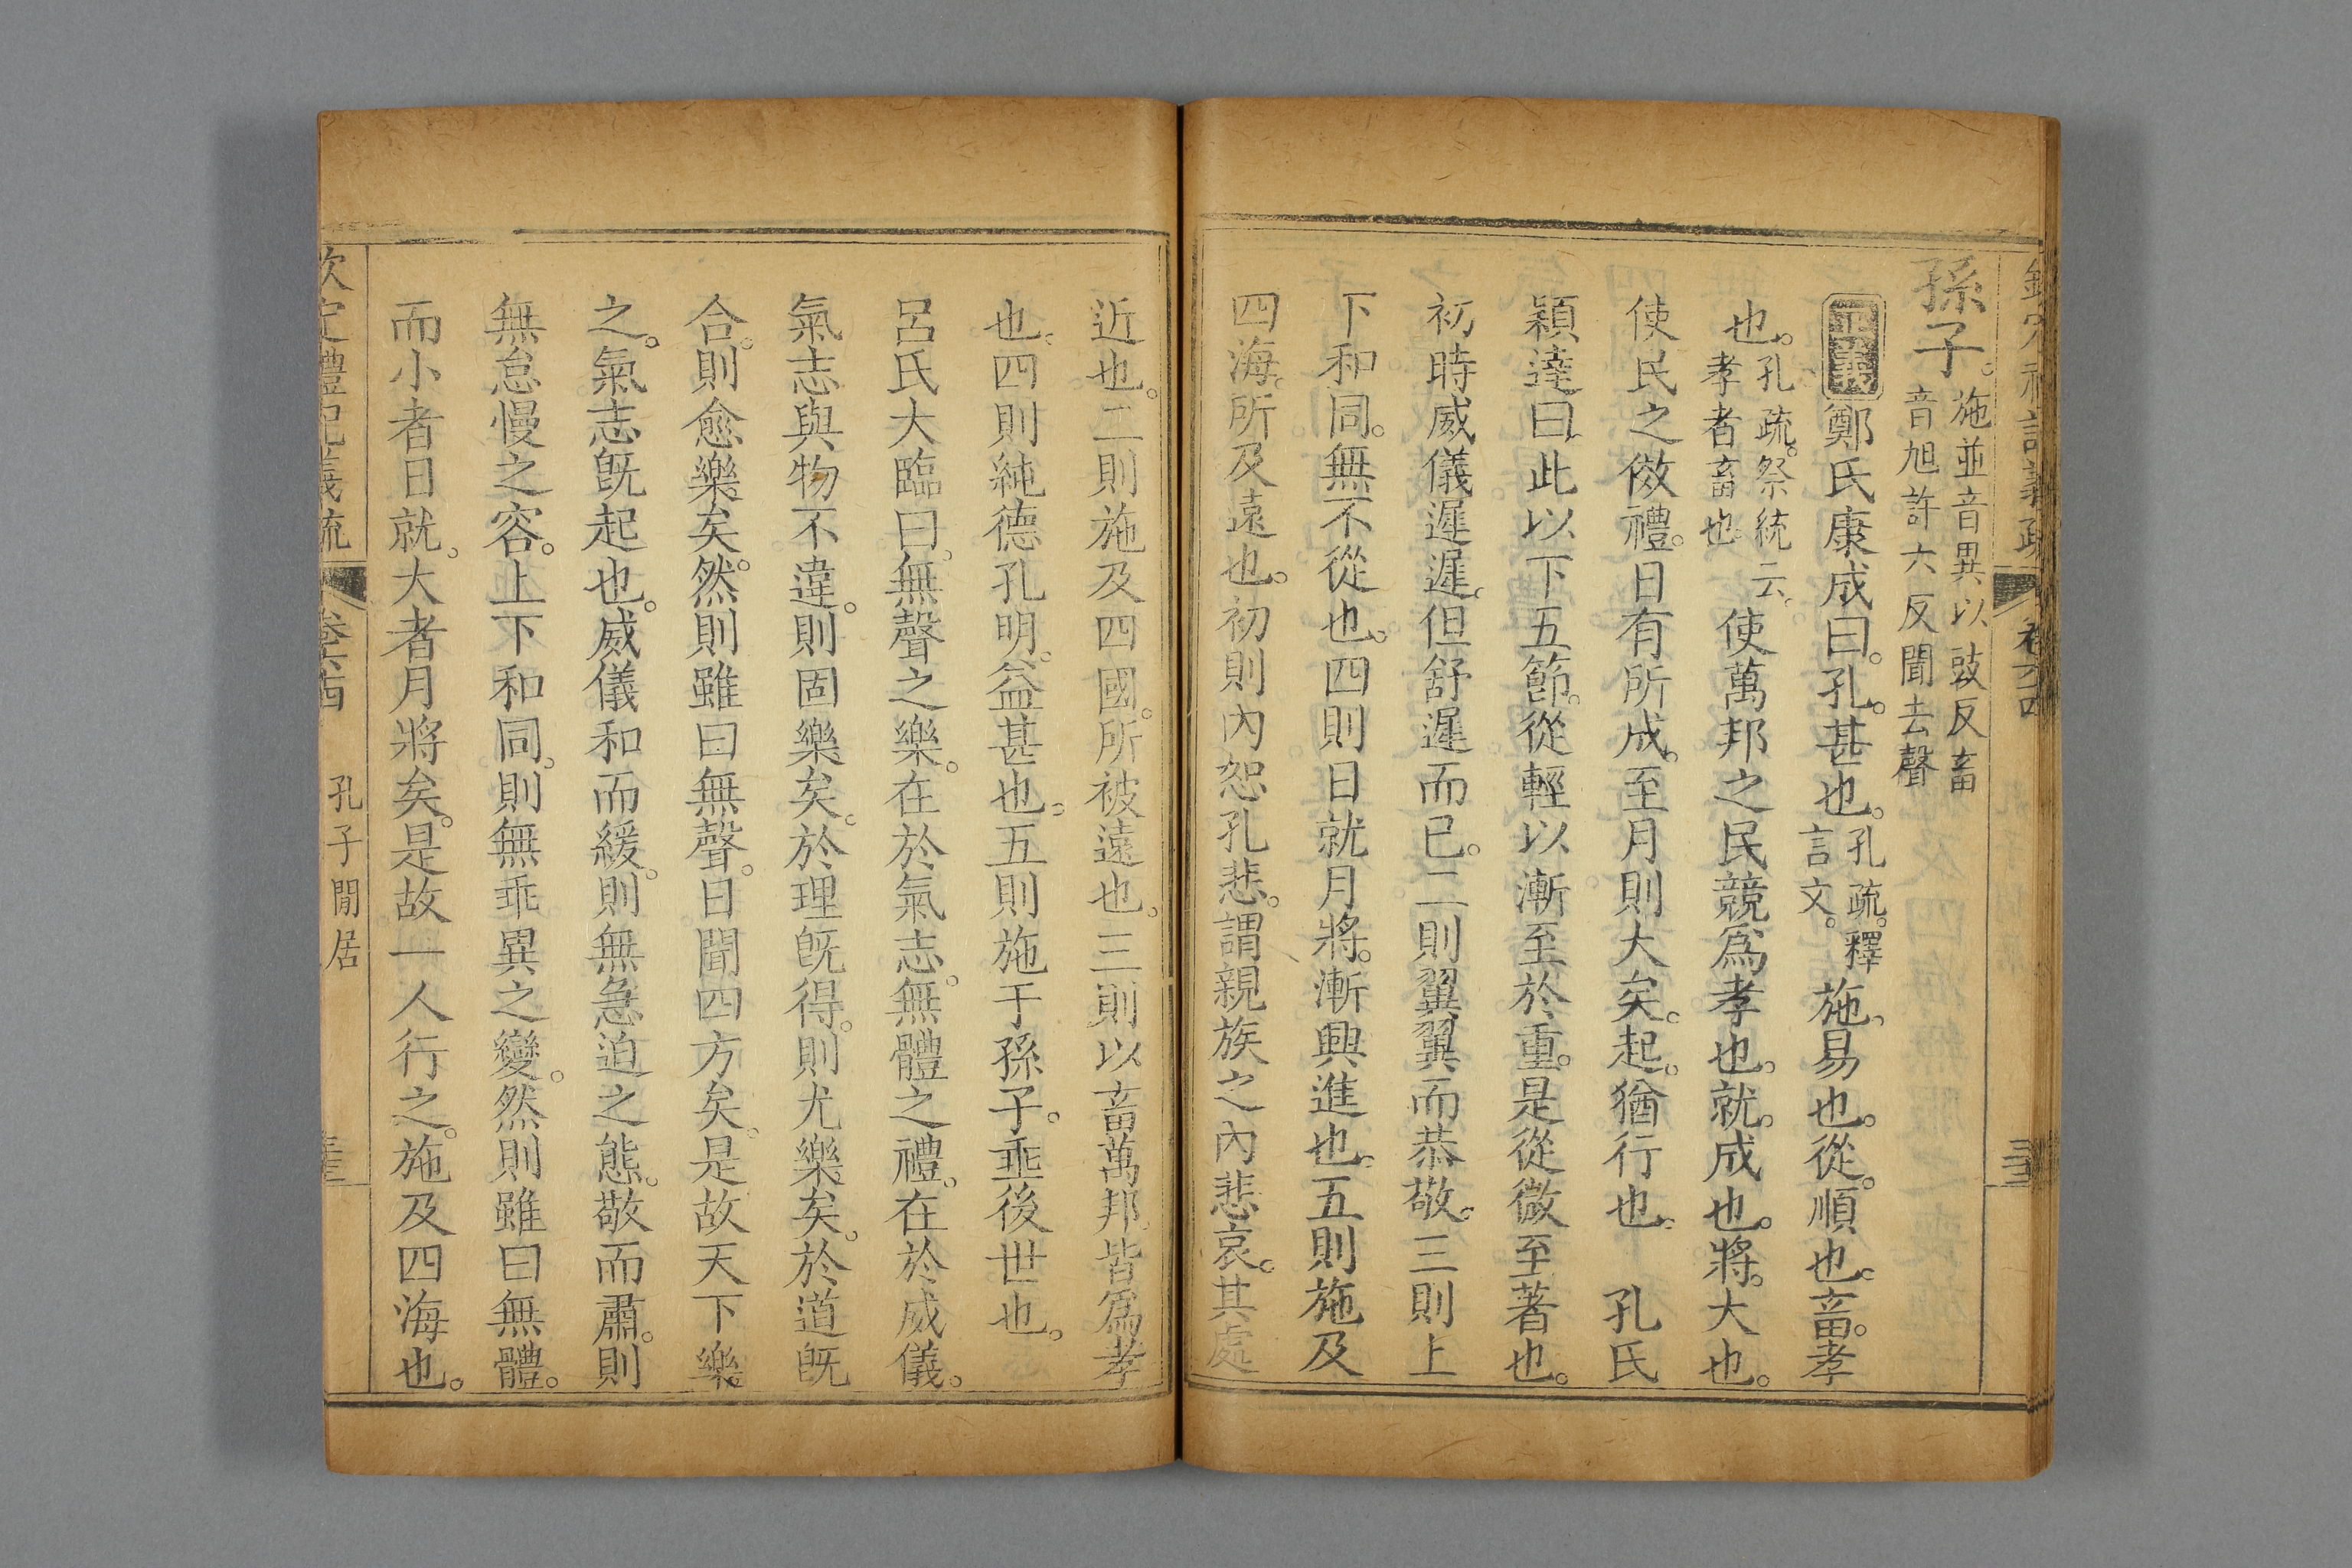 孫子。施並音異以豉反畜音旭許六反聞去聲
正義鄭氏康成曰。孔。甚也。孔疏。釋言文。施。易也。從。順也。畜。孝
也。孔疏。祭統云。孝者畜也。使萬邦之民競爲孝也。就。成也。將。大也。
使民之傚禮。日有所成。至月則大矣。起。猶行也。 孔氏
穎達曰。此以下五節。從輕以漸至於重。是從微至著也。
初時威儀遲遲。但舒遲而已。二則翼翼而恭敬。三則上
下和同。無不從也。四則日就月將。漸興進也。五則施及
四海。所及遠也。初則內恕孔悲。謂親族之內悲哀。其處
近也。二則施及四國。所被遠也。三則以畜萬邦。皆爲孝
也。四則純德孔明。益甚也。五則施于孫子。垂後世也。
呂氏大臨曰。無聲之樂。在於氣志。無體之禮。在於威儀。
氣志與物不違。則固樂矣。於理旣得。則尤樂矣。於道旣
合。則愈樂矣。然則雖曰無聲。日聞四方矣。是故天下樂
之。氣志旣起也。威儀和而緩。則無急迫之態。敬而肅。則
無怠慢之容。上下和同。則無乖異之變。然則雖曰無體。
而小者日就。大者月將矣。是故一人行之。施及四海也。
欽定禮記義疏 卷六十四 孔子閒居